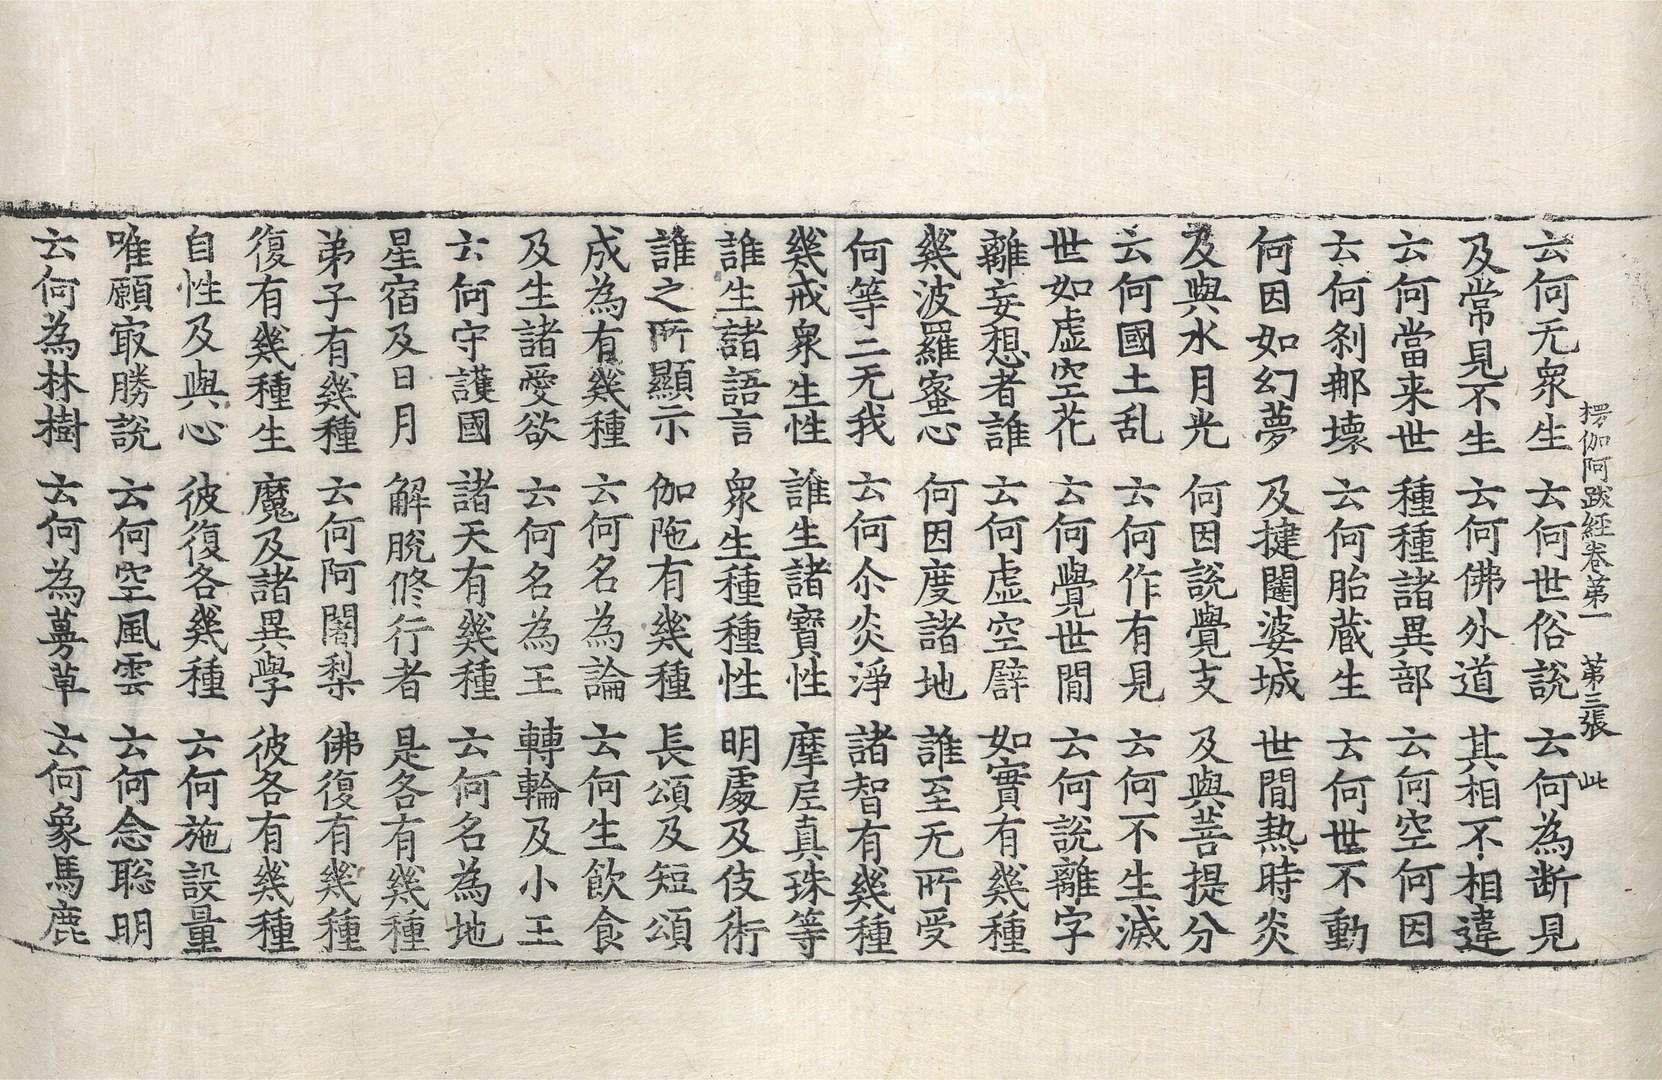 楞伽阿跋經卷第一 第三張 此
云何无衆生 云何世俗說 云何為断見
及常見不生 云何佛外道 其相不相違
云何當来世 種種諸異部 云何空何因
云何刹那壞 云何胎蔵生 云何世不動
何因如幻夢 及揵闥婆城 世間熱時炎
及與水月光 何因說覺支 及與菩提分
云何國土乱 云何作有見 云何不生滅
世如虛空花 云何覺世間 云何說離字
離妄想者誰 云何虛空譬 如實有幾種
幾波羅蜜心 何因度諸地 誰至无所受
何等二无我 云何尒炎淨 諸智有幾種
幾戒衆生性 誰生諸寶性 摩尼真珠等
誰生諸語言 衆生種種性 明處及伎術
誰之所顯示 伽陁有幾種 長頌及短頌
成為有幾種 云何名為論 云何生飲食
及生諸愛欲 云何名為王 轉輪及小王
云何守護國 諸天有幾種 云何名為地
星宿及日月 解脫修行者 是各有幾種
弟子有幾種 云何阿闍梨 佛復有幾種
復有幾種生 魔及諸異學 彼各有幾種
自性及與心 彼復各幾種 云何施設量
唯願㝡勝說 云何空風雲 云何念聡明
云何為林樹 云何為蔓草 云何象馬鹿